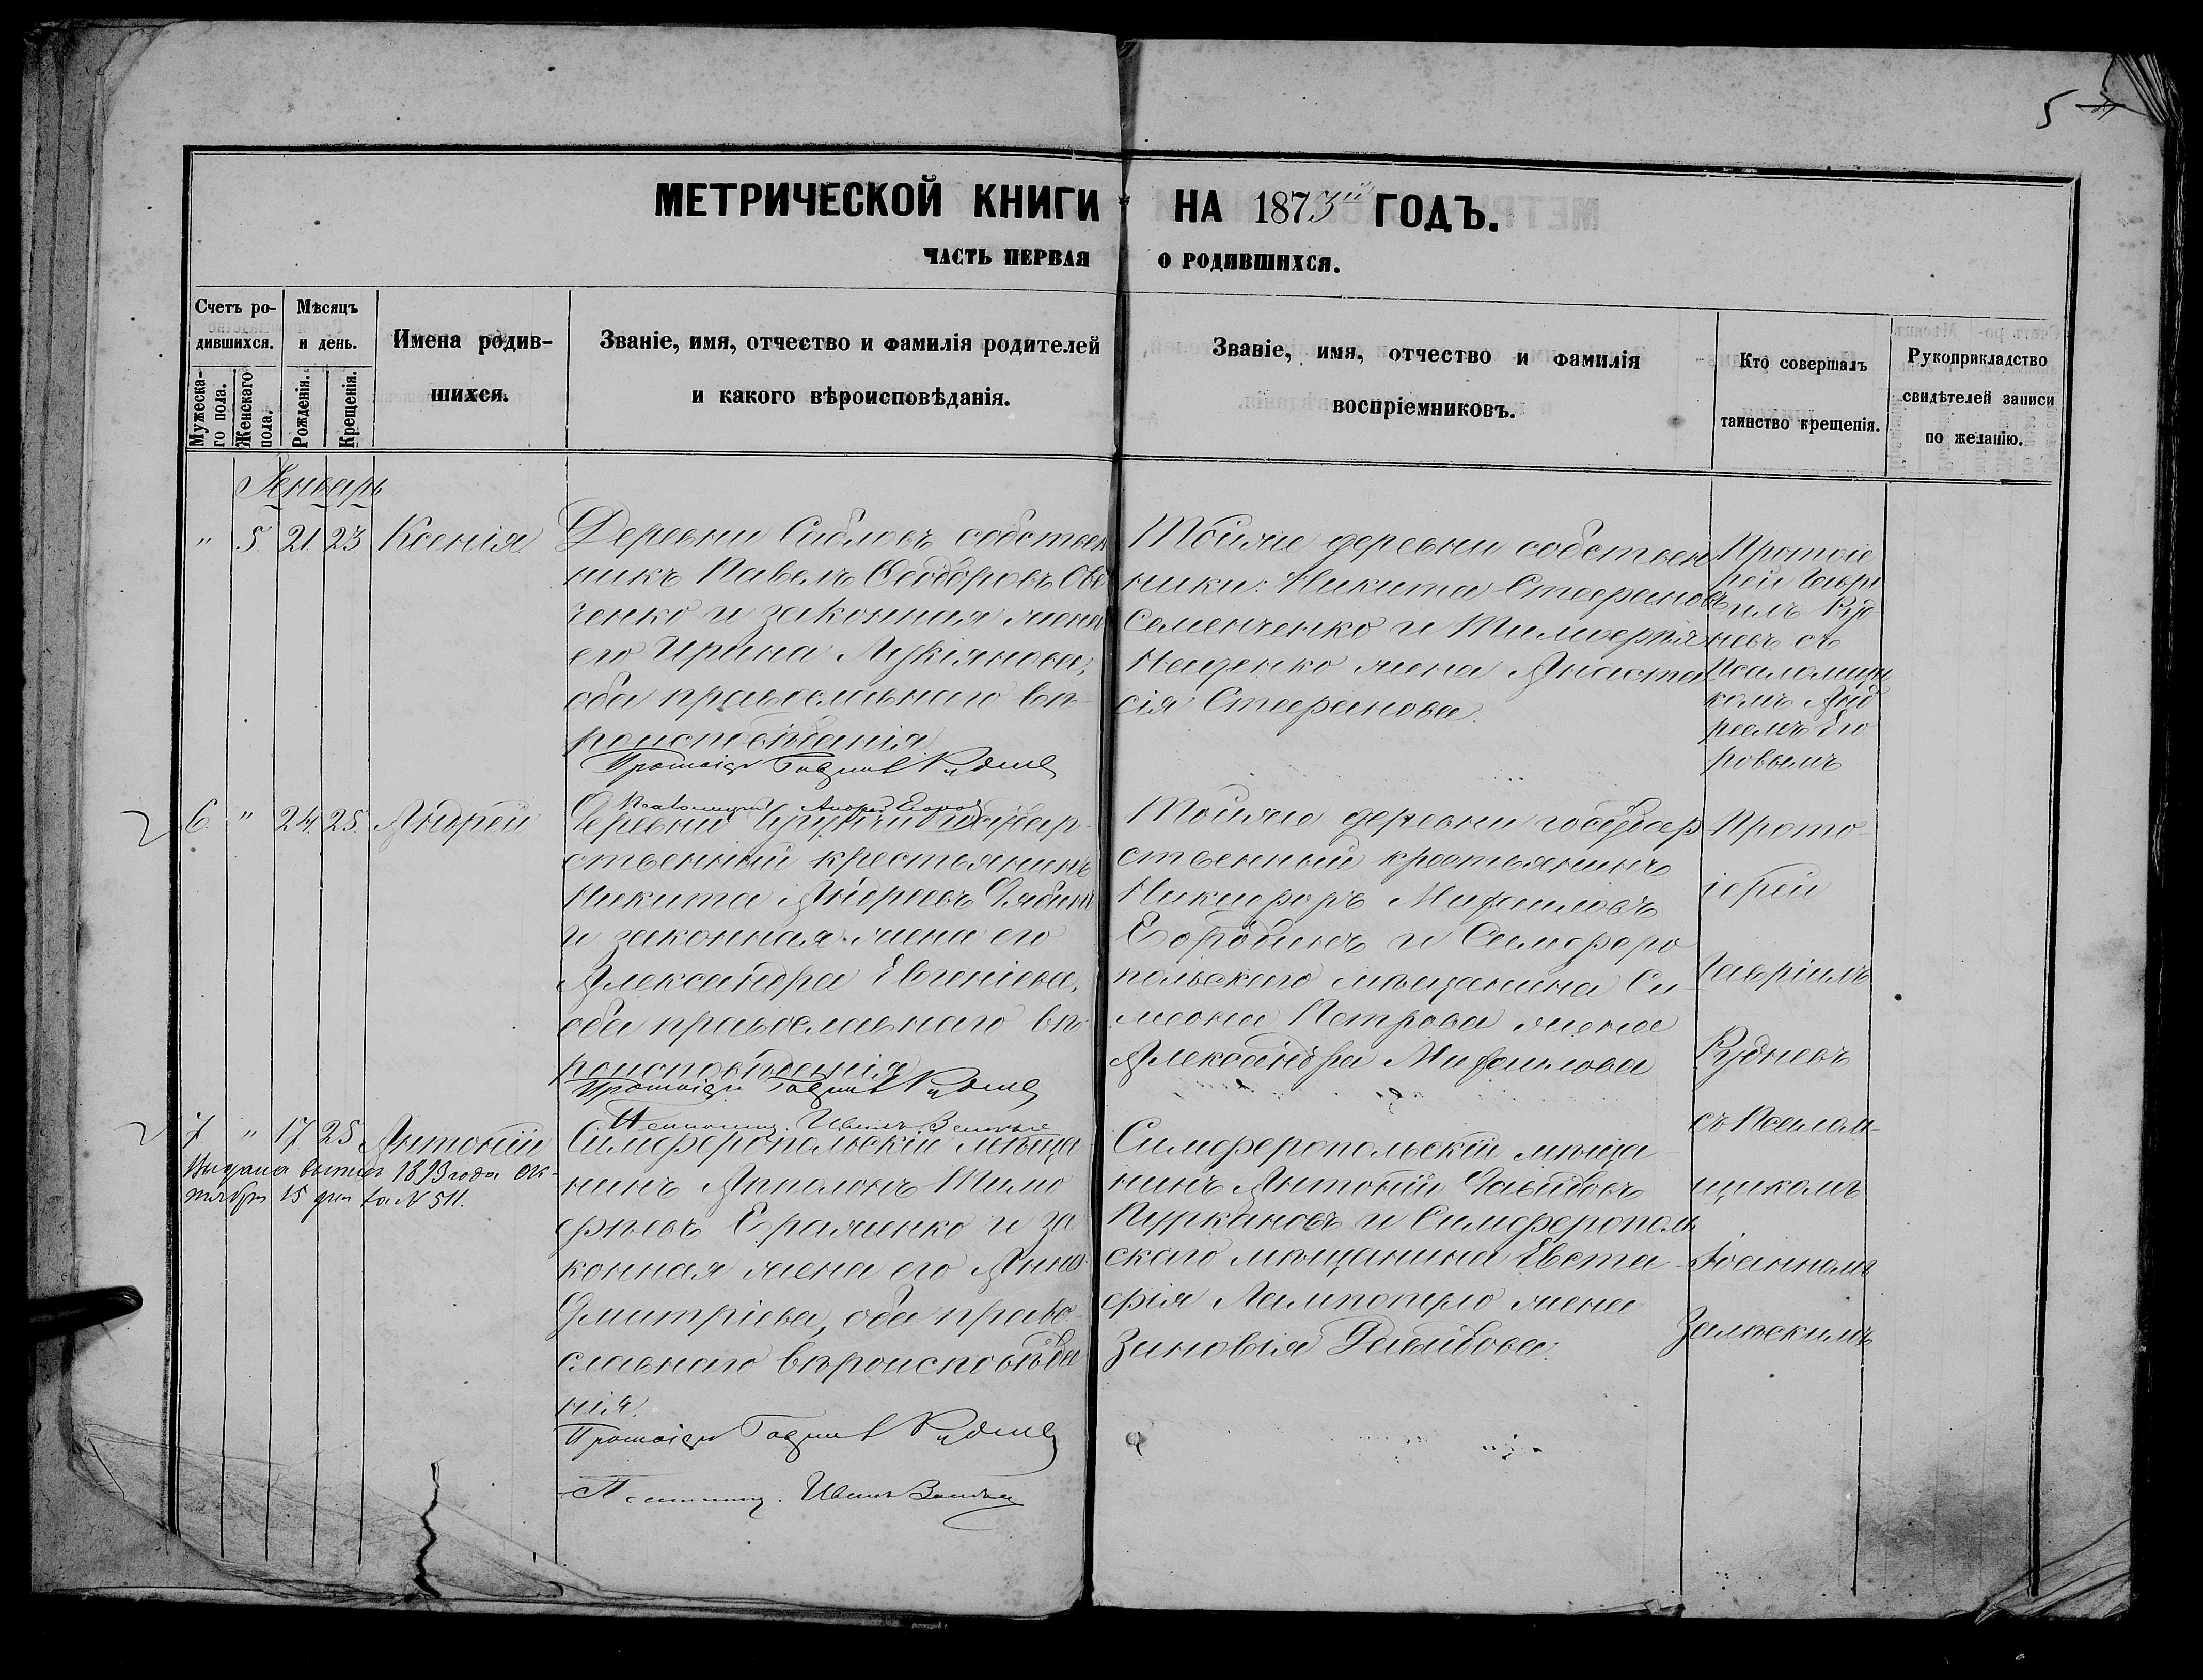 5
МЕТРИЧЕСКОЙ КНИГИ НА 1873й ГОДЪ.
ЧАСТЬ ПЕРВАЯ О РОДИВШИХСЯ.
Счетъ ро-
дившихся.
Мужеска-
го пола.
Женскаго
пола.
Мѣсяцъ
и день.
Рожденія.
Крещенія.
Имена родив-
шихся.
Званіе, имя, отчество и фамилія родителей
и какого вѣроисповѣданія.
Званіе, имя, отчество и фамилія
воспріемниковъ.
Кто совершалъ
таинство крещенія.
Рукоприкладство
свидѣтелей записи
по желанію.
Январь
" 5. 21 23 Ксенія
Деревни Сабловъ собствен
никъ Павелъ Ѳеодоровъ Ов
ченко и законная жена
его Ирина Лукіянова,
оба православнаго вѣ-
роисповѣданія
Протоіер Гавріил Руднев
Псаломщикъ Андрей Егоров
Тойже деревни собствен
ники: Никита Стефановъ
Семенченко и Тимоѳея
жена Анаста
сія Стефанова.
Протоіе
рей Гаврі
илъ Руд
невъ съ
Псаломщи
комъ Анд
реемъ Его
ровымъ
6. " 24. 25. Андрей
Деревни государ-
ственный крестьянинъ
Никита Андреевъ
и законная жена его
Александра Евгеніева,
оба православнаго вѣ-
роисповѣданія
Протоіер Гавріил Руднев
Псаломщ. Иванъ
Тойже деревни государ
ственный крестьянинъ
Никифоръ Михаиловъ
Бородинъ и Симферо
польскаго мѣщанина Си-
меона Петрова жена
Александра Михаилова
Прото-
іерей
Гавріилъ
Рудневъ
съ Псалом-
щикомъ
Іоанномъ
Залѣскимъ
7. " 17 25 Антоній
Выдана выпись 1893 года Ок-
тября 15 дня за N 511.
Симферопольскій мѣща
нинъ Апполонъ Тимо
ѳѣевъ Ераменко и за
конная жена его Анна
Дмитріева, оба право-
славнаго вѣроисповѣда
нія.
Протоіер Гавріил Руднев
Псаломщ. Иванъ
Симферопольскій мѣща-
нинъ Антоній Давидовъ
Пуркановъ и Симферополь
скаго мѣщанина Евста-
фія жена
Зиновія Давидова.